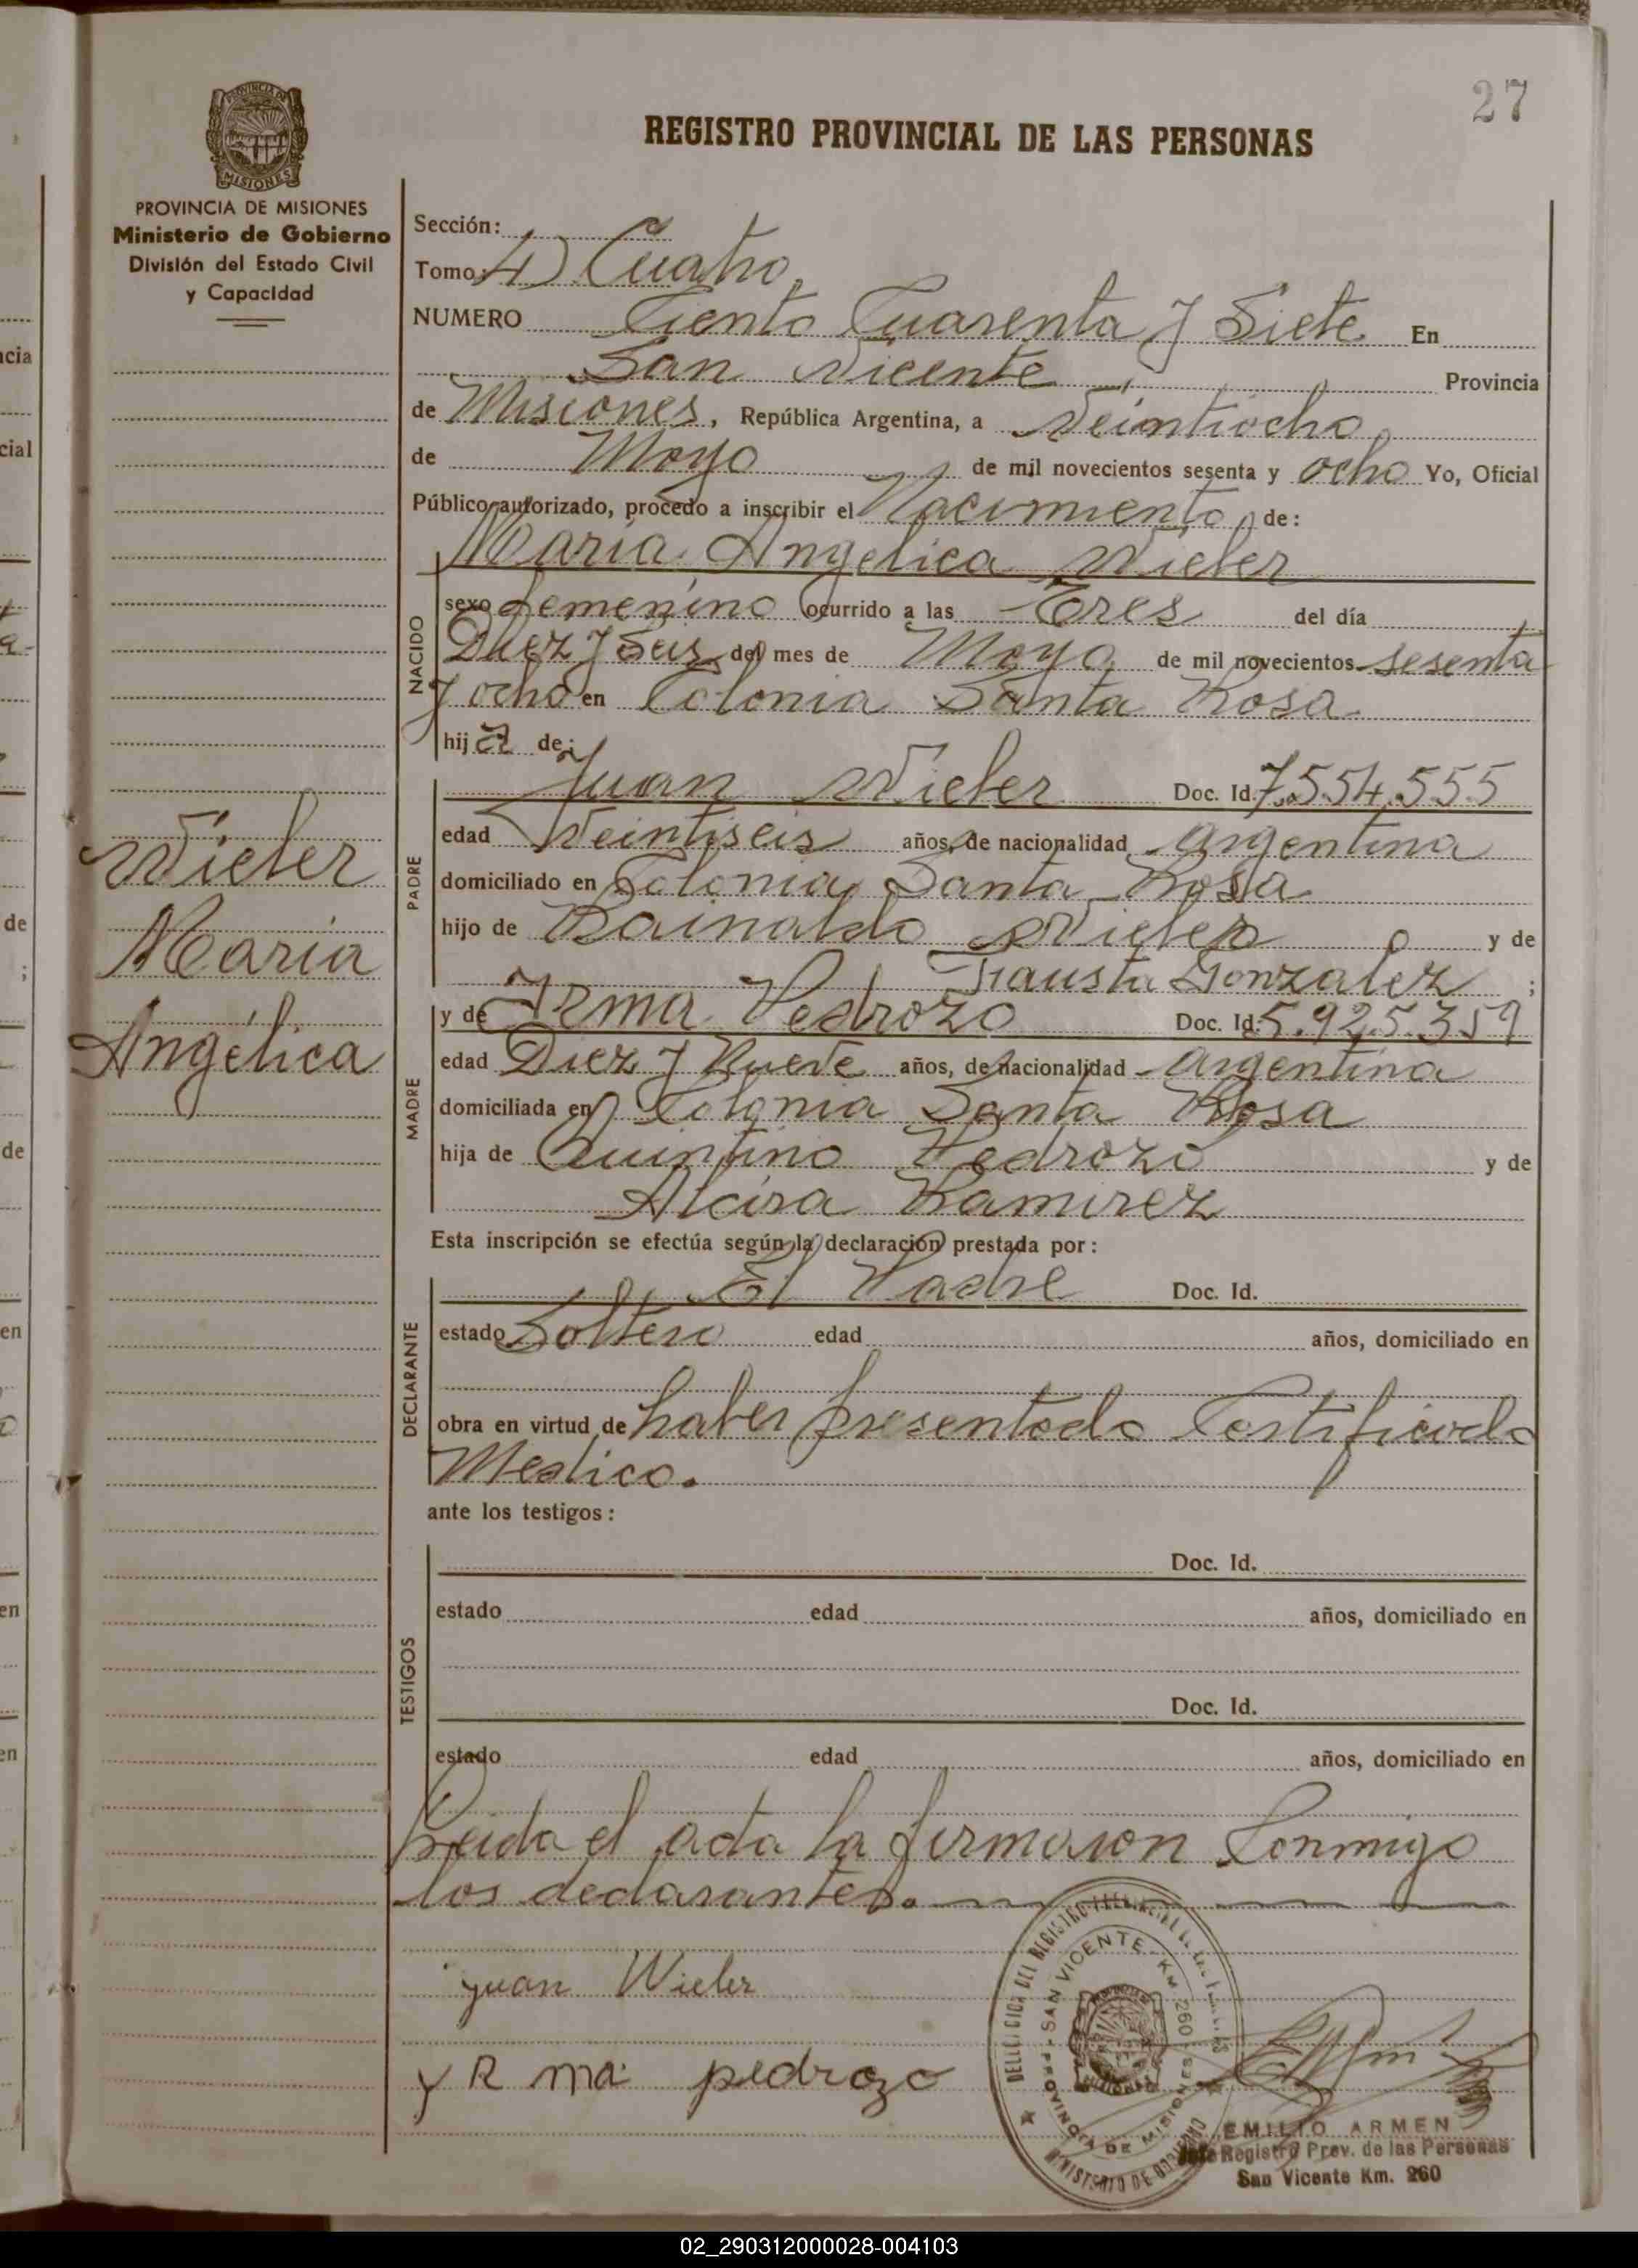 27
REGISTRO PROVINCIAL DE LAS PERSONAS
PROVINCIA DE MISIONES
Ministerio de Gobierno
División del Estado Civil
y Capacidad
Sección:
Tomo: 4) Cuatro
NUMERO Ciento Cuarenta y Siete En
San Vicente Provincia
de Misiones, República Argentina, a Veintiocho
de Mayo de mil novecientos sesenta y ocho Yo, Oficial
Público autorizado, procedo a inscribir el Nacimiento de:
Maria Angelica Wieler
NACIDO
sexo femenino ocurrido a las Tres del día
Diez y Seis del mes de Mayo de mil novecientos sesenta
y ocho en Colonia Santa Rosa
hija de:
PADRE
Juan Wieler Doc. Id. 7.554.555
edad Veintiseis años, de nacionalidad argentina
domiciliado en Colonia Santa Rosa
hijo de Rainaldo Wieler y de
Fausta Gonzalez ;
MADRE
y de Irma Pedrozo Doc. Id. 5.925.359
edad Diez y Nueve años, de nacionalidad argentina
domiciliada en Colonia Santa Rosa
hija de Quintino Pedrozo y de
Alcira Ramirez
Wieler
Maria
Angélica
Esta inscripción se efectúa según la declaración prestada por:
DECLARANTE
El Padre Doc. Id.
estado Soltero edad años, domiciliado en
obra en virtud de haber presentado Certificado
Medico.
ante los testigos:
TESTIGOS
Doc. Id.
estado edad años, domiciliado en
Doc. Id.
estado edad años, domiciliado en
Leida el acta la firmaron Conmigo
los declarantes.
juan Wieler
yRma pedrozo
SAN VICENTE - KM. 260
PROVINCIA DE MISIONES
MINISTERIO DE GOBIERNO
EMILIO ARMEN
Jefe Registro Prov. de las Personas
San Vicente Km. 260
02_290312000028-004103